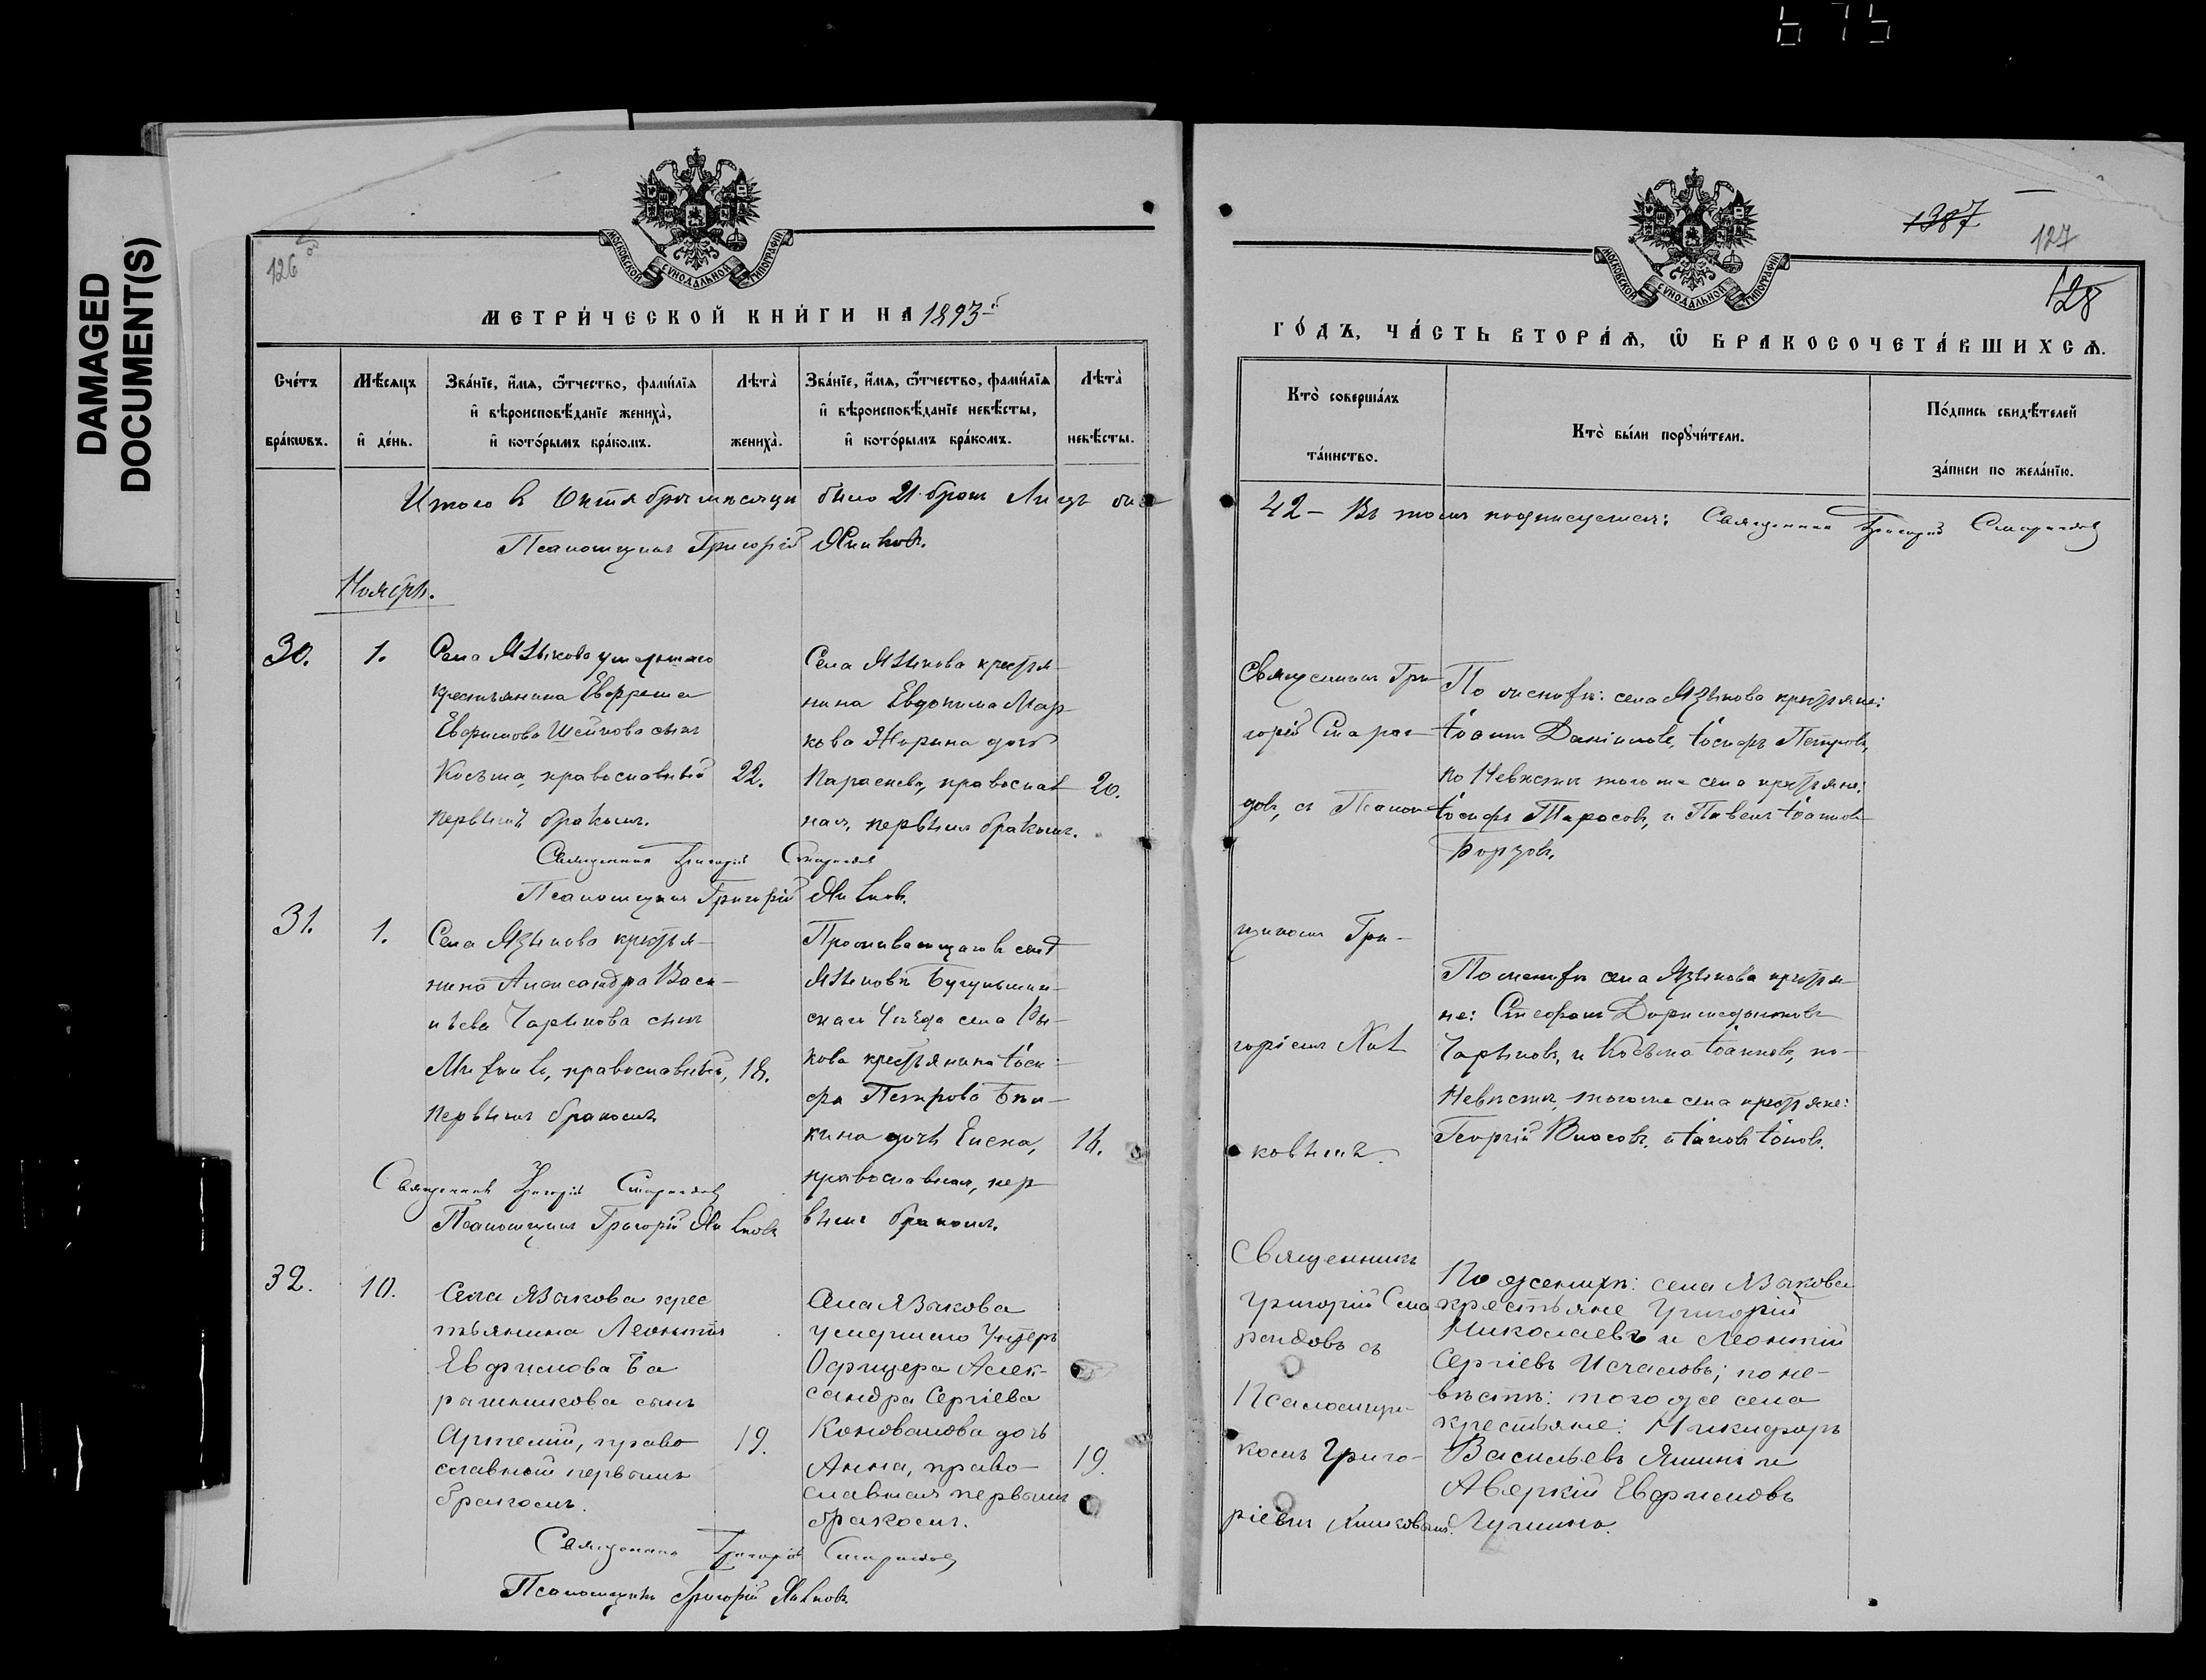 DAMAGED
DOCUMENT(S)
126 об
МОСКОВСКОЙ СѴНОДАЛЬНОЙ ТИПОГРАФІИ
МЕТРИ́ЧЕСКОЙ КНИ́ГИ НА 1893-й
Сче́тъ бра́кѡвъ.
Мѣ́сяцъ и҆ де́нь.
Зва́нїе, и҆́мѧ, ѻ҆́тчество, фами́лїѧ и҆ вѣроисповѣ́данїе жениха̀, и҆ кото́рымъ бра́комъ.
Лѣта̀ жениха̀.
Зва́нїе, и҆́мѧ, ѻ҆́тчество, фами́лїѧ и҆ вѣроисповѣ́данїе невѣ́сты, и҆ кото́рымъ бра́комъ.
Лѣта̀ невѣ́сты.
Итого в Октябрѣ мѣсяцѣ было 21 брак Лицъ об
Псаломщикъ Григорій
Ноябрь.
30.
1.
Села Языкова умершаго
крестьянина Евфрема
Евфимова сынъ
Косьма, православный
первымъ бракомъ.
22.
Села Языкова крестья-
нина Евдокима Мар-
кова дочь
Параскева, православ
ная, первымъ бракомъ.
20.
Священникъ Григорій
Псаломщикъ Григорій
31.
1.
Села Языкова крестья-
нина Александра Васи-
льева Чарыкова сынъ
православный,
первымъ бракомъ
18.
Проживающаго в селѣ
Языковѣ Бугульмин-
скаго Уѣзда села
кова крестьянина Іоси-
фа Петрова
кина дочь Елена,
православная, пер
вымъ бракомъ.
16.
Священникъ Григорій
Псаломщикъ Григорій
32.
10.
Села Языкова крес
тьянина Леонтія
Евфимова Ба
рышникова сынъ
Артемій, право
славный первымъ
бракомъ.
19.
Села Языкова
умершаго Унтеръ
Офицера Алек-
сандра Сергіева
Коновалова дочь
Анна, право-
славная первымъ
бракомъ.
19.
Священникъ Григорій
Псаломщикъ Григорій
1387
127
128
МОСКОВСКОЙ СѴНОДАЛЬНОЙ ТИПОГРАФІИ
ГО́ДЪ, ЧА́СТЬ ВТОРА́Ѧ, Ѽ БРАКОСОЧЕТА́ВШИХСѦ.
Кто̀ соверша́лъ та́инство.
Кто̀ бы́ли порꙋчи́тели.
По́дпись свидѣ́телей за́писи по жела́нїю.
42 - Въ томъ подписуемся: Священникъ Григорій
Священникъ Гри-
горій
довъ, съ Псалом-
щикомъ Гри-
горіемъ
ковымъ.
По женихѣ: села Языкова крестьяне:
Іоаннъ Даніиловъ, Іосифъ Петровъ,
по Невѣстѣ того же села крестьяне:
Іосифъ Тарасовъ, и Павелъ Іоанновъ
Борзовъ.
По женихѣ села Языкова крестья
не: Стефанъ Доримедонтовъ
Чарыковъ, и Косьма Іоанновъ, по
Невѣстѣ, того же села крестьяне:
Георгій Власовъ, и Іаковъ Іоновъ.
Священникъ
Григорій Ста
рвидовъ съ
Псаломщи-
комъ Григо-
ріемъ
По женихѣ: села Языкова
крестьяне Григорій
Николаевъ и Леонтій
Сергіевъ Исчаловъ; по не-
вѣстѣ: того же села
крестьяне: Никифоръ
Васильевъ Яшинъ и
Аверкій Евфимовъ